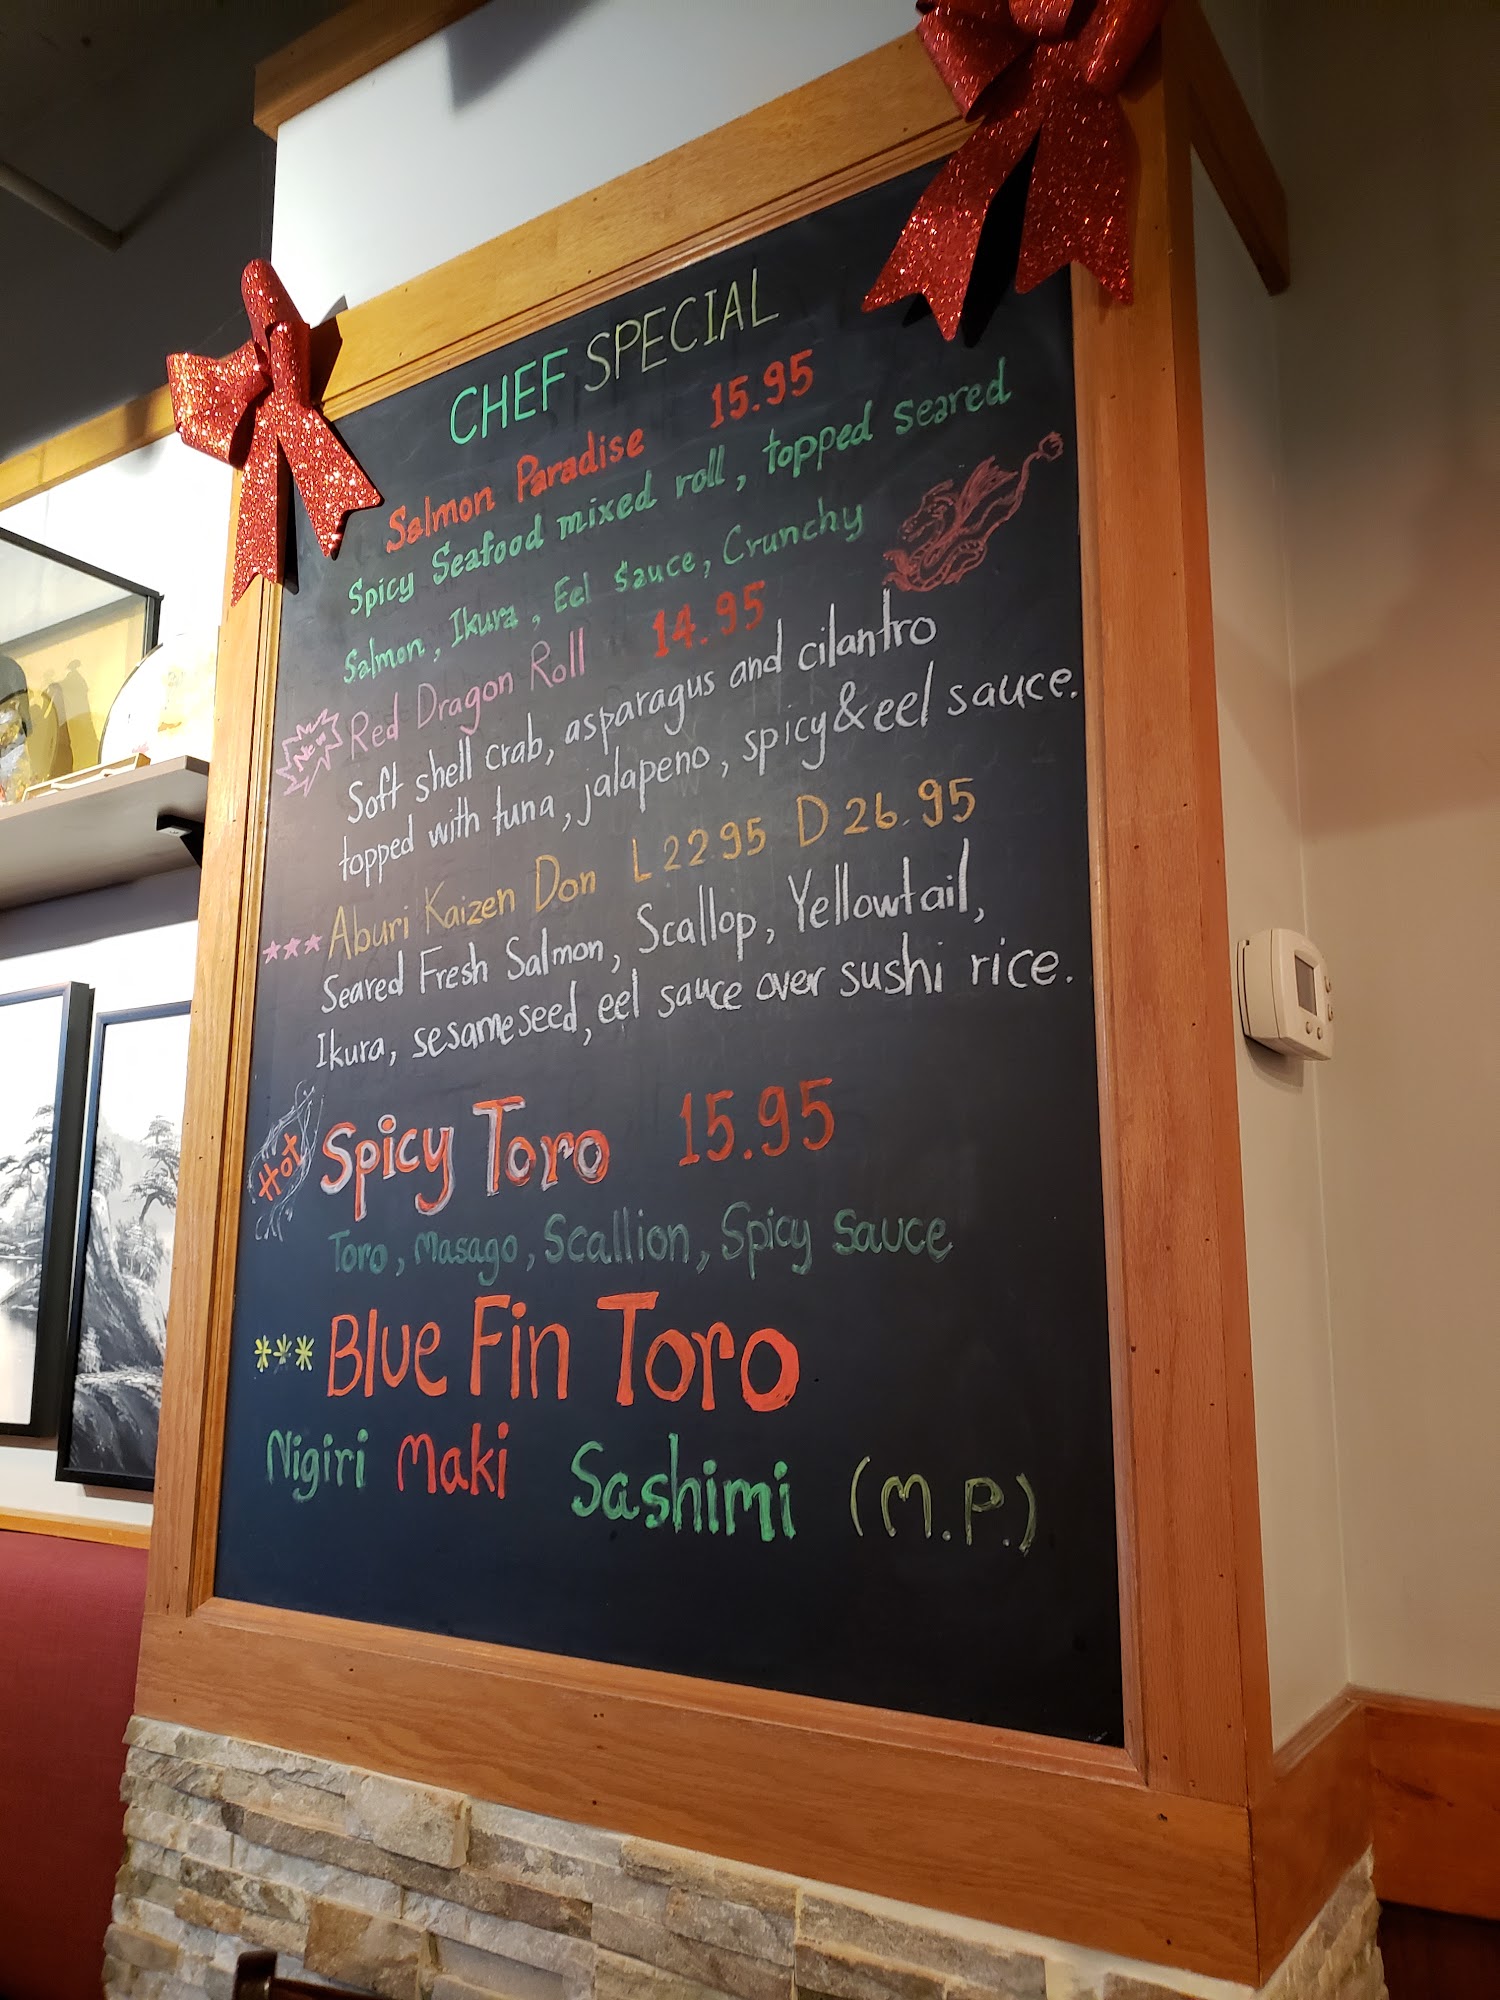 CHEF SPECIAL
Salmon Paradise 15.95
Spicy Seafood mixed roll, topped seared
Salmon, Ikura, Eel Sauce, Crunchy
New Red Dragon Roll 14.95
Soft shell crab, asparagus and cilantro
topped with tuna, jalapeno, spicy & eel sauce.
★★★ Aburi Kaizen Don L 22 95 D 26.95
Seared Fresh Salmon, Scallop, Yellowtail,
Ikura, sesame seed, eel sauce over sushi rice.
Hot Spicy Toro 15.95
Toro, Masago, Scallion, Spicy Sauce
*** Blue Fin Toro
Nigiri Maki Sashimi (M.P.)